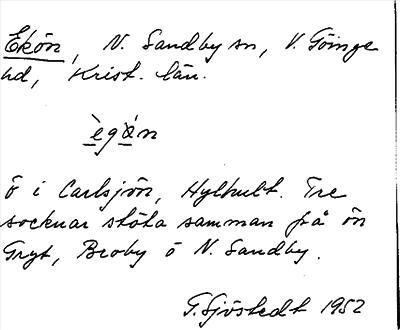 Ekön, N. Sandby sn, V. Göinge
hd, Krist. län.
ègö́n
Ö i Carlsjön, Hylhult. Tre
socknar stöta samman på ön
Gryt, Broby o N. Sandby.
G. Sjöstedt 1952